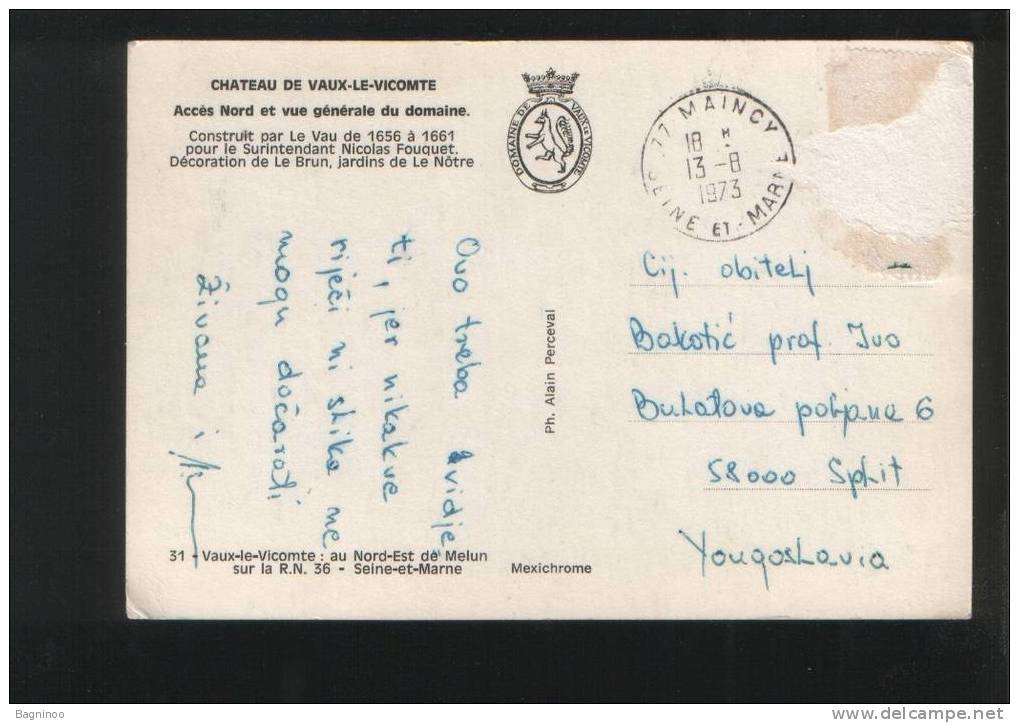 CHATEAU DE VAUX-LE-VICOMTE
Accès Nord et vue générale du domaine.
Construit par Le Vau de 1656 à 1661
pour le Surintendant Nicolas Fouquet.
Décoration de Le Brun, jardins de Le Nôtre
DOMAINE DE VAUX-LE-VICOMTE
77 MAINCY
18 H
13-8
1973
SEINE ET-MARNE
Ovo treba vidje
ti, jer nikakve
riječi ni slika ne
mogu dočarati
Živana i
Cij. obitelj
Bakotić prof. Ivo
Bulatova poljana 6
58000 Split
Yougoslavia
Ph. Alain Perceval
31 - Vaux-le-Vicomte : au Nord-Est de Melun
sur la R.N. 36 - Seine-et-Marne
Mexichrome
Bagninoo